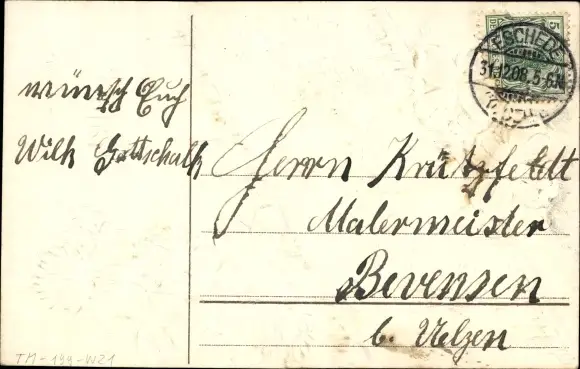 wünscht Euch
Wilh Gottschalk
ESCHEDE
31.12.08. 5-6N
5
Herrn Krützfeldt
Malermeister
Bevensen
b. Uelzen
TM-199-W21